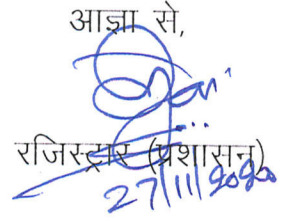 आज्ञा से,
रजिस्ट्रार (प्रशासन)
27/11/2020